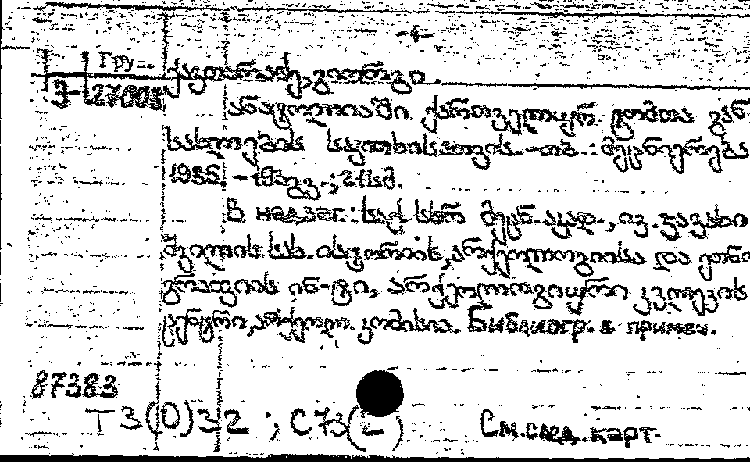 -4-
Гру
3-27005 ქავთარაძე, გიორგი.
ანატოლიაში ქართველურ ტომთა გან
სახლების საკითხისათვის. -თბ.: მეცნიერება
1985. -19გვ.; 21სმ.
В надзаг.: საქ სსრ მეცნ. აკად., ივ. ჯავახი
შვილის სახ. ისტორიის, არქეოლოგიისა და ეთნო
გრაფიის ინ-ტი, არქეოლოგიური კვლევის
ცენტრი, არქეოლ. კომისია. Библиогр. в примеч.
87383
Т3(0)32 ; С73(2).
См. след. карт.